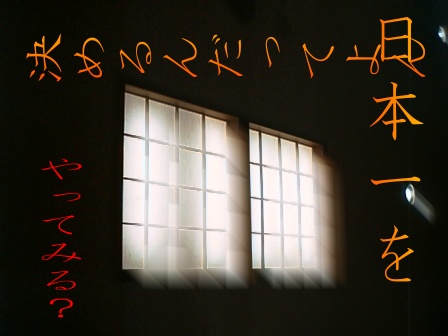 日本一を
決めるんだってよん
やってみる?